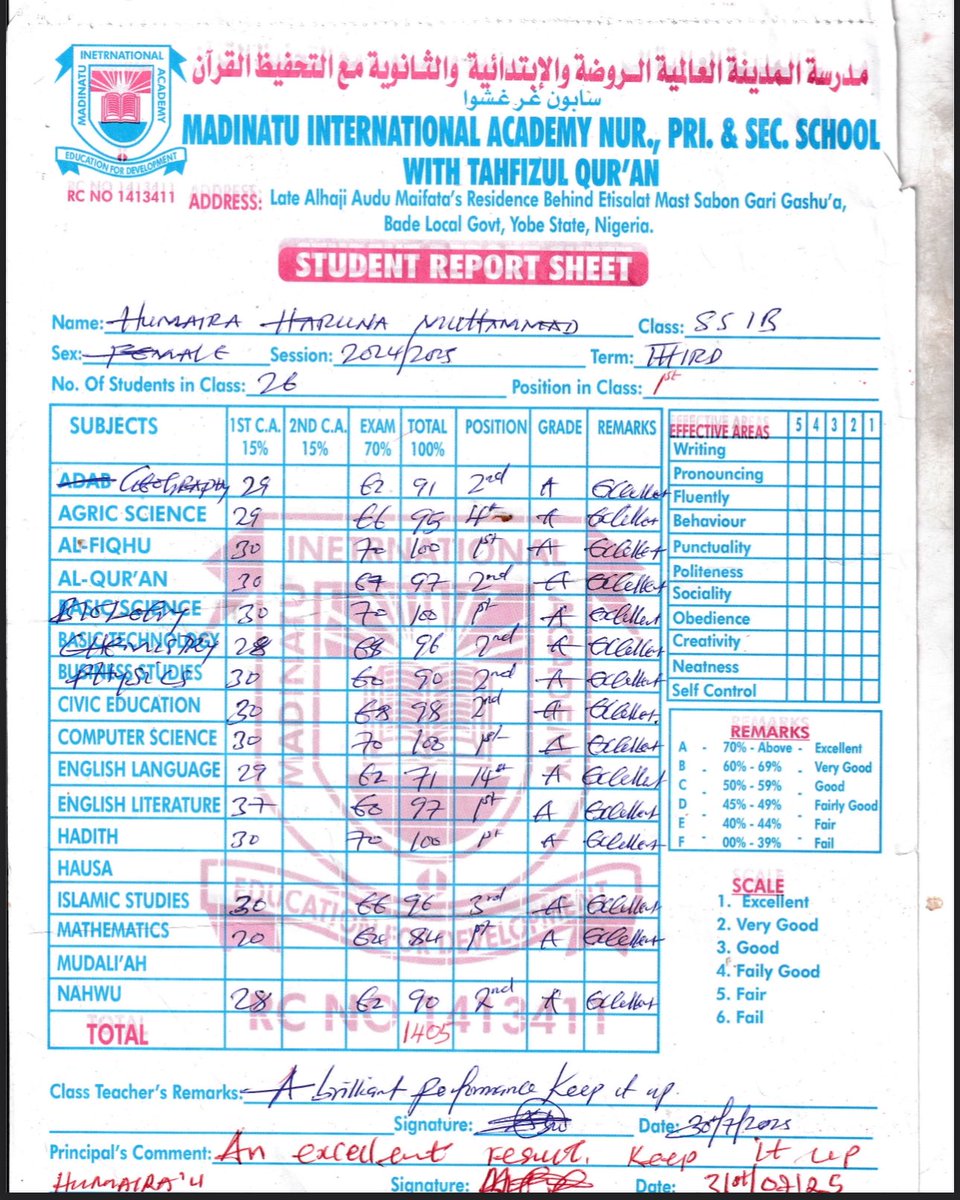 مدرسة المدينة العالمية الروضة والإبتدائية والثانوية مع التحفيظ القرآن
سنابون غر غشوا
INETRNATIONAL
MADINATU
ACADEMY
EDUCATION FOR DEVELOPMENT
RC NO 1413411
MADINATU INTERNATIONAL ACADEMY NUR., PRI. & SEC. SCHOOL
WITH TAHFIZUL QUR'AN
ADDRESS: Late Alhaji Audu Maifata's Residence Behind Etisalat Mast Sabon Gari Gashu'a,
Bade Local Govt, Yobe State, Nigeria.
STUDENT REPORT SHEET
Name: HUMAIRA HARUNA MUHAMMAD Class: SS 1B
Sex: FEMALE Session: 2024/2025 Term: THIRD
No. Of Students in Class: 26 Position in Class: 1st
SUBJECTS 1ST C.A. 15% 2ND C.A. 15% EXAM 70% TOTAL 100% POSITION GRADE REMARKS
ADAB GEOGRAPHY 29 62 91 2nd A Excellent
AGRIC SCIENCE 29 66 95 4th A Excellent
AL-FIQHU 30 70 100 1st A Excellent
AL-QUR'AN 30 67 97 2nd A Excellent
BASIC SCIENCE BIOLOGY 30 70 100 1st A Excellent
BASIC TECHNOLOGY CHEMISTRY 28 68 96 2nd A Excellent
BUSINESS STUDIES PHYSICS 30 60 90 2nd A Excellent
CIVIC EDUCATION 30 68 98 2nd A Excellent.
COMPUTER SCIENCE 30 70 100 1st A Excellent
ENGLISH LANGUAGE 29 62 71 14th A Excellent
ENGLISH LITERATURE 37 60 97 1st A Excellent
HADITH 30 70 100 1st A Excellent
HAUSA
ISLAMIC STUDIES 30 66 96 3rd A Excellent
MATHEMATICS 20 64 84 1st A Excellent
MUDALI'AH
NAHWU 28 62 90 2nd A Excellent
TOTAL 1405
EFFECTIVE AREAS 5 4 3 2 1
Writing
Pronouncing
Fluently
Behaviour
Punctuality
Politeness
Sociality
Obedience
Creativity
Neatness
Self Control
REMARKS
A - 70% - Above - Excellent
B - 60% - 69% - Very Good
C - 50% - 59% - Good
D - 45% - 49% - Fairly Good
E - 40% - 44% - Fair
F - 00% - 39% - Fail
SCALE
1. Excellent
2. Very Good
3. Good
4. Faily Good
5. Fair
6. Fail
INETRNATIONAL
MADINATU
EDUCATION FOR DEVELOPMENT
RC NO 1413411
Class Teacher's Remarks: A brilliant performance Keep it up.
Signature: Date: 30/7/2025
Principal's Comment: An excellent result. Keep it up
HUMAIRA'U Signature: Date: 31st/07/25